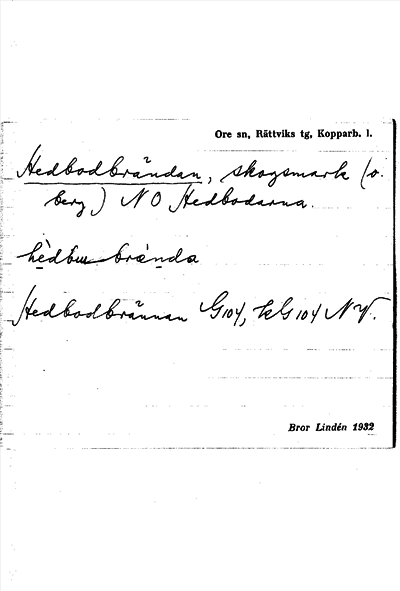 Ore sn, Rättviks tg, Kopparb. l.
Hedbodbrändan, skogsmark (o.
berg) NO Hedbodarna.
brända
Hedbodbrännan G104, kG104 NV.
Bror Lindén 1932